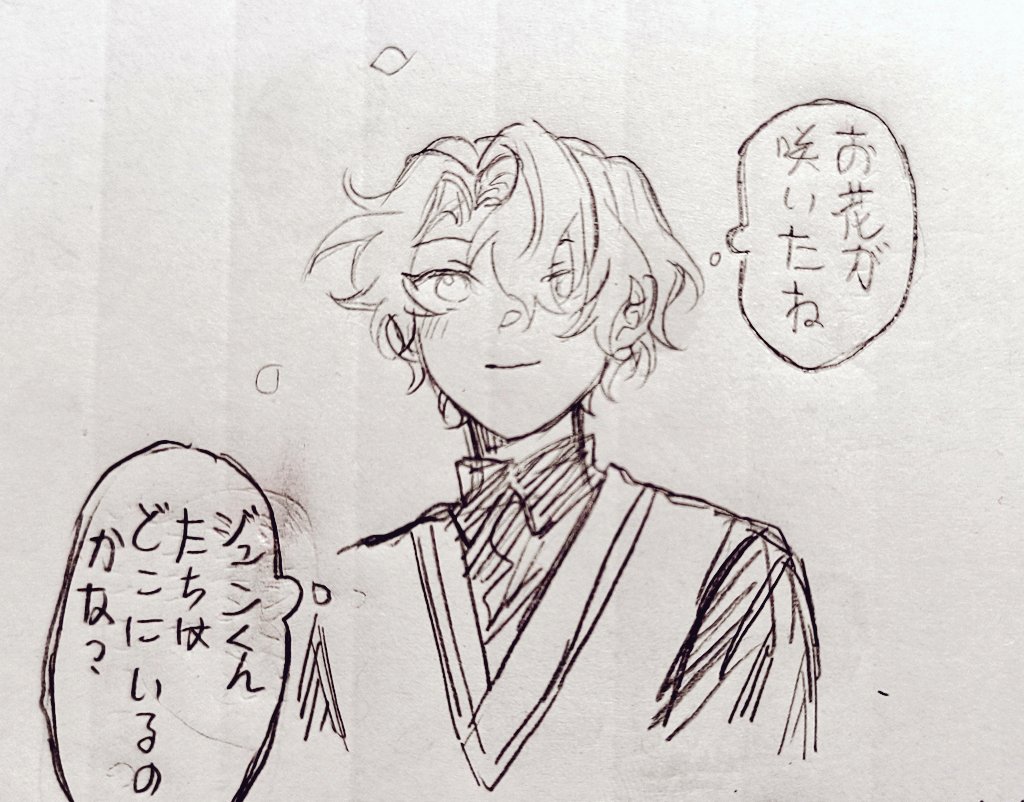 お花が
咲いたね
ジュンくん
たちは
どこにいるの
かな？